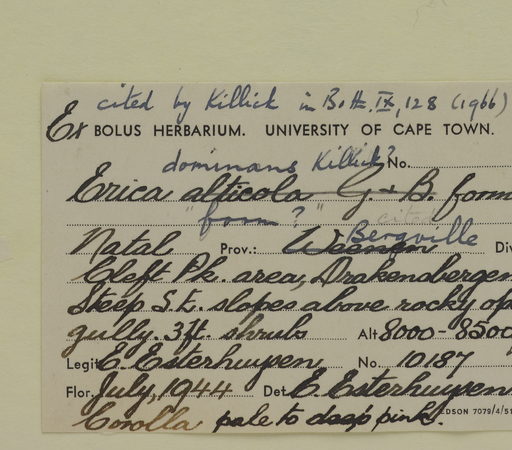 cited by Killick in Bott. IX, 128 (1966)
Ex BOLUS HERBARIUM. UNIVERSITY OF CAPE TOWN.
dominans Killick? No.
Erica alticola G. & B. form
"form?" cited
Bergville
Natal Prov.: Weenen Div
Cleft Pk. area, Drakensbergen
Steep S.E. slopes above rocky op
gully. 3ft. shrub Alt 8000-8500
Legit E. Esterhuysen, No. 10187
Flor. July, 1944 Det E. Esterhuysen
Corolla pale to deep pink. EDSON 7079/4/51